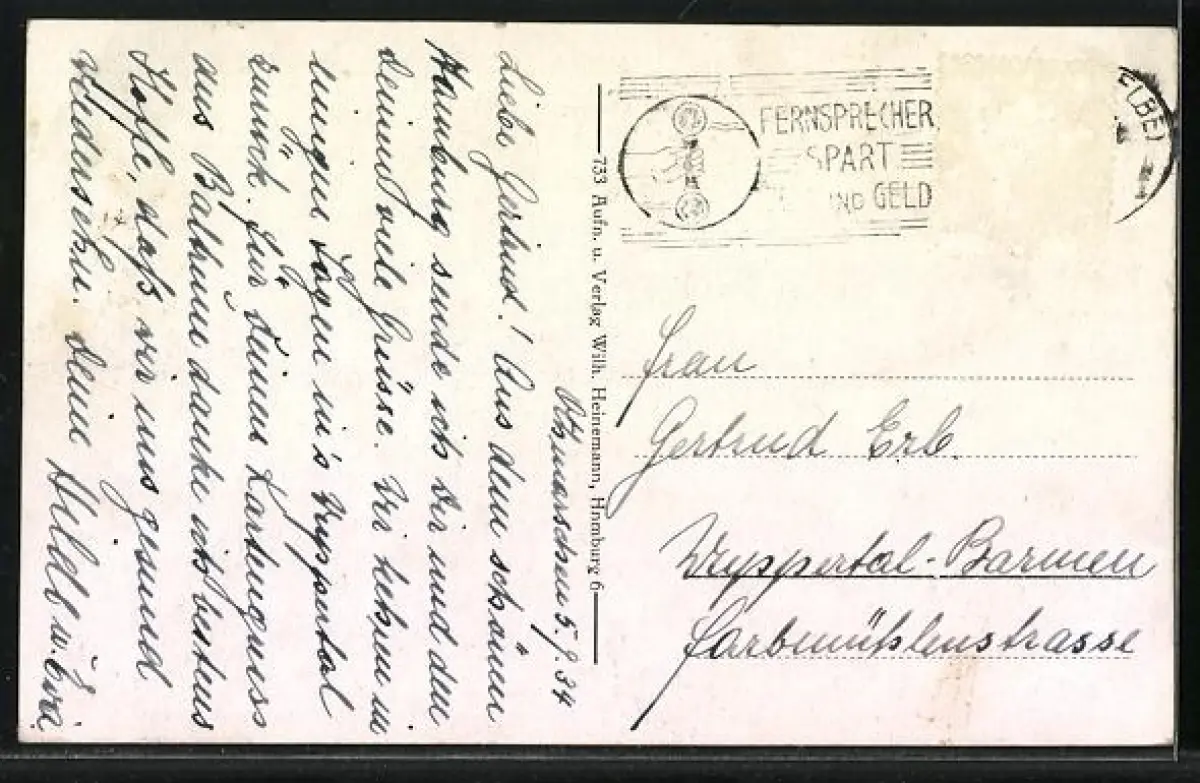 Othmarschen 5.9.34
Liebe Gertrud! Aus dem schönen
Hamburg sende ich Dir und den
Deinen viele Grüsse. Wir kehren in
einigen Tagen in's Wuppertal
zurück. Für Deinen Kartengruss
aus Baltrum danke ich bestens
Hoffe, daß wir uns gesund
wiedersehn. Deine Hilde u.
733 Aufn. u. Verlag Wilh. Heinemann, Hamburg 6
FERNSPRECHER
SPART
UND GELD
ELBE)
Frau
Gertrud Erb.
Wuppertal-Barmen
Farbmühlenstrasse